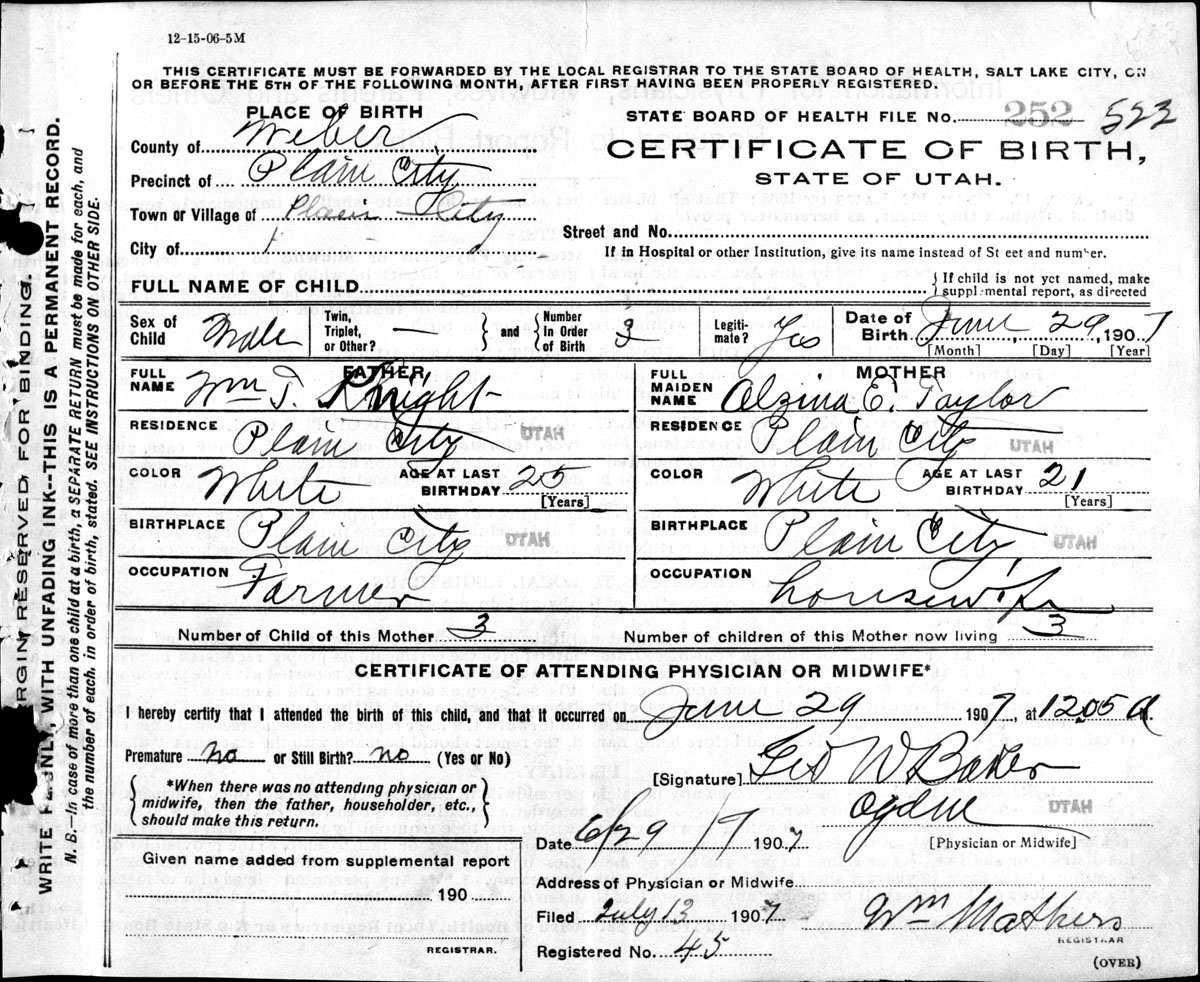 12-15-06-5M
THIS CERTIFICATE MUST BE FORWARDED BY THE LOCAL REGISTRAR TO THE STATE BOARD OF HEALTH, SALT LAKE CITY, ON
OR BEFORE THE 5TH OF THE FOLLOWING MONTH, AFTER FIRST HAVING BEEN PROPERLY REGISTERED.
PLACE OF BIRTH
County of Weber
Precinct of Plain City
Town or Village of Plain City
City of
STATE BOARD OF HEALTH FILE No. 252 522
CERTIFICATE OF BIRTH,
STATE OF UTAH.
Street and No.
If in Hospital or other Institution, give its name instead of St eet and number.
FULL NAME OF CHILD
If child is not yet named, make supplemental report, as directed
Sex of Child Male
Twin, Triplet, or Other? —
and Number In Order of Birth 3
Legitimate? Yes
Date of Birth June 29, 1907
[Month] [Day] [Year]
FATHER
FULL NAME Wm T. Knight
RESIDENCE Plain City UTAH
COLOR White AGE AT LAST BIRTHDAY 25
[Years]
BIRTHPLACE Plain City UTAH
OCCUPATION Farmer
MOTHER
FULL MAIDEN NAME Alzina E. Taylor
RESIDENCE Plain City UTAH
COLOR White AGE AT LAST BIRTHDAY 21
[Years]
BIRTHPLACE Plain City UTAH
OCCUPATION housewife
Number of Child of this Mother 3 Number of children of this Mother now living 3
CERTIFICATE OF ATTENDING PHYSICIAN OR MIDWIFE*
I hereby certify that I attended the birth of this child, and that it occurred on June 29 1907, at 1205 a.
Premature no or Still Birth? no (Yes or No)
*When there was no attending physician or
midwife, then the father, householder, etc.,
should make this return.
[Signature] Geo W Baker
Ogden UTAH
[Physician or Midwife]
Date 6/29/7 1907
Given name added from supplemental report
190
REGISTRAR.
Address of Physician or Midwife
Filed July 13 1907 Wm Mathers
REGISTRAR
Registered No. 45
(OVER)
MARGIN RESERVED FOR BINDING.
WRITE PLAINLY, WITH UNFADING INK--THIS IS A PERMANENT RECORD.
N. B.—In case of more than one child at a birth, a SEPARATE RETURN must be made for each, and
the number of each, in order of birth, stated. SEE INSTRUCTIONS ON OTHER SIDE.